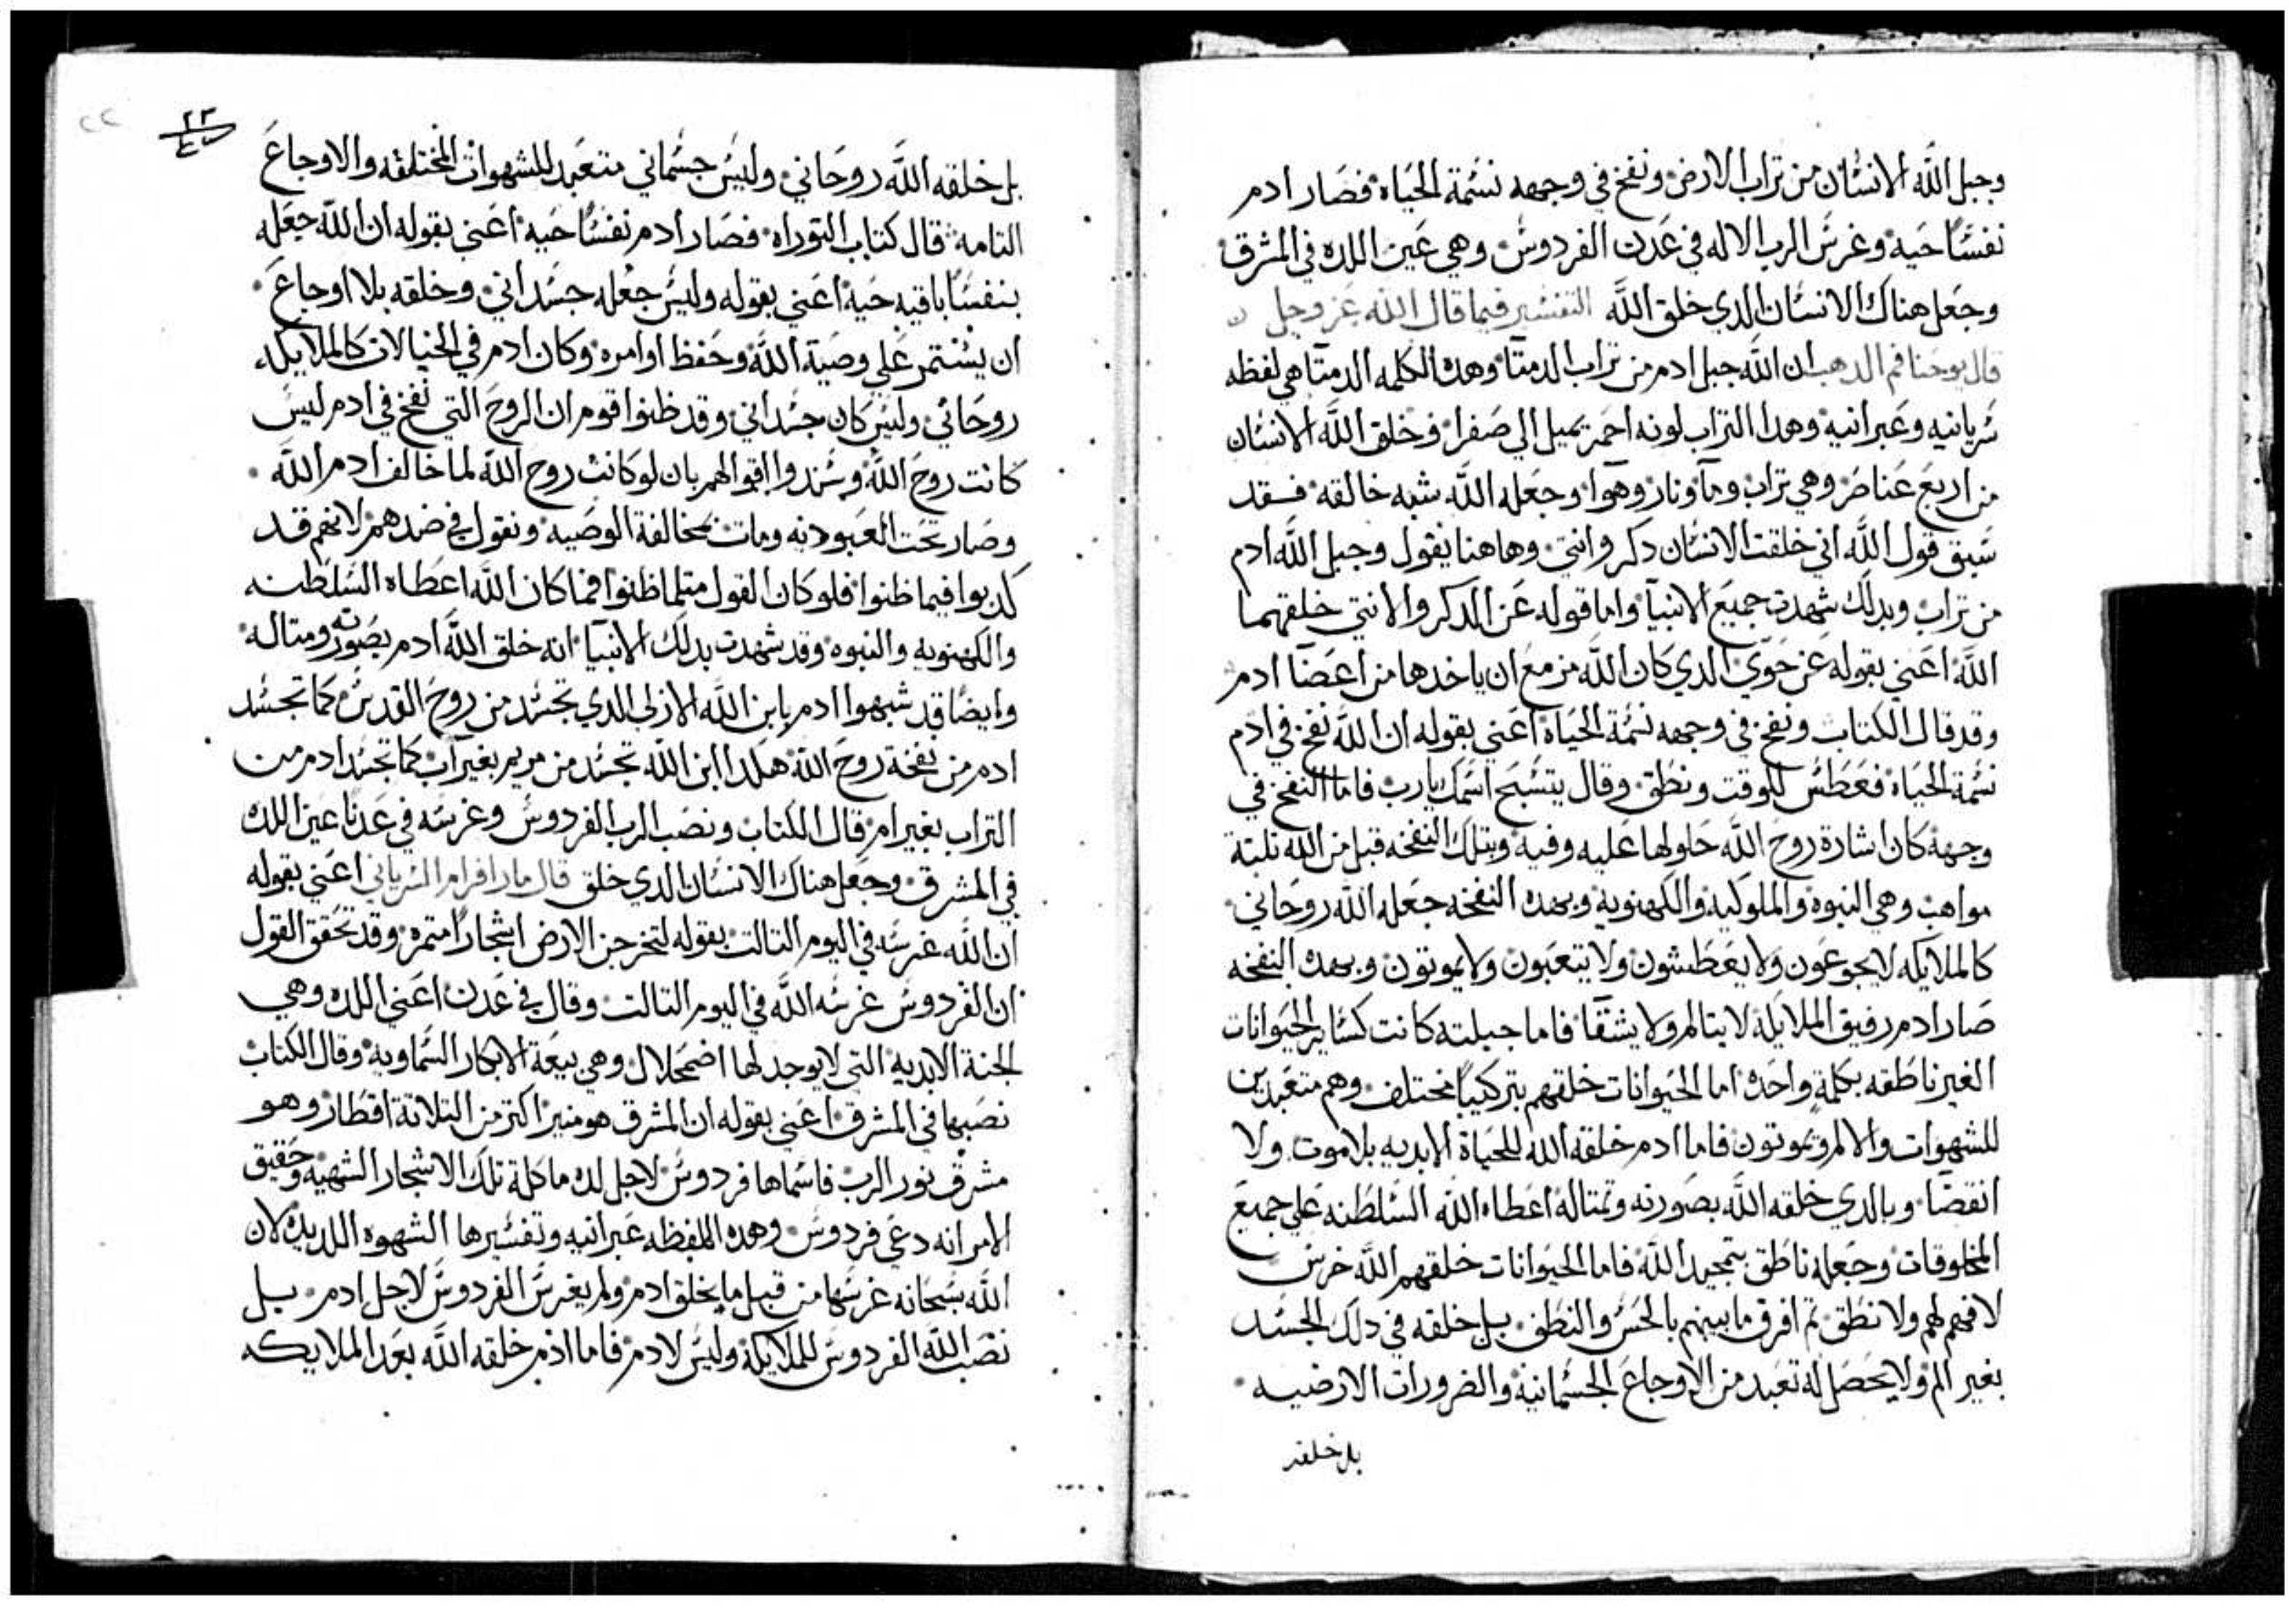 وجبل الله الانسان من تراب الارض ونفخ في وجهه نسمة الحياه فصار ادم
نفسا حيه وغرس الرب الاله في عدن الفردوس وهي عين اللده في المشرق
وجعل هناك الانسان الدي خلق الله التفسير فيما قال الله عز وجل
قال يوحنا فم الدهب ان الله جبل ادم من تراب الدمتا وهده الكلمه الدمتا هي لفظه
سريانيه وعبرانيه وهدا التراب لونه احمر يميل الي صفرا وخلق الله الانسان
من اربع عناصر وهي تراب وما ونار وهوا وجعله الله شبه خالقه فقد
سبق قول الله اني خلقت الانسان دكر وانتي وهاهنا يقول وجبل الله ادم
من تراب وبدلك شهدت جميع الانبيا واما قوله عن الدكر والانتي خلقهما
الله اعني بقوله عن حوي الدي كان الله مزمع ان ياخدها من اعضا ادم
وقد قال الكتاب ونفخ في وجهه نسمة الحياه اعني بقوله ان الله نفخ في ادم
نسمة الحياه فعطس للوقت ونطق وقال يتسبح اسمك يارب فاما النفخ في
وجهه كان اشارة روح الله حلولها عليه وفيه وبتلك النفخه قبل من الله تلتة
مواهب وهي النبوه والملوكيه والكهنويه وبهده النفخه جعله الله روحاني
كالملايكه لا يجوعون ولا يعطشون ولا يتعبون ولا يموتون وبهده النفخه
صار ادم رفيق الملايكه لا يتالم ولا يشقا فاما جبلته كانت كساير الحيوانات
الغير ناطقه بكلمة واحده اما الحيوانات خلقهم بتركيبا مختلف وهم متعبدين
للشهوات والالم ويموتون فاما ادم خلقه الله للحياة الابديه بلا موت ولا
انقضا وبالدي خلقه الله بصورته وتمتاله اعطاه الله السلطنه علي جميع
المخلوقات وجعله ناطق بتمجيد الله فاما الحيوانات خلقهم الله خرس
لا فهم لهم ولا نطق تم افرق ما بينهم بالحس والنطق بل خلقه في دلك الجسد
بغير الم ولا يحصل له تعبد من الاوجاع الجسمانيه والضرورات الارضيه
بل خلقه
٢٢
بل خلقه الله روحاني وليس جسماني متعبد للشهوات المختلفه والاوجاع
التامه قال كتاب التوراه فصار ادم نفسا حيه اعني بقوله ان الله جعله
بنفسا باقيه حيه اعني بقوله وليس جعله جسداني وخلقه بلا اوجاع
ان يستمر علي وصية الله وحفظ اوامره وكان ادم في الخيالات كالملايكه
روحاني وليس كان جسداني وقد ظنوا قوم ان الروح التي نفخ في ادم ليس
كانت روح الله وشدوا اقوالهم بان لو كانت روح الله لما خالف ادم الله
وصار تحت العبوديه ومات بمخالفة الوصيه ونقول في ضدهم لانهم قد
كدبوا فيما ظنوا فلو كان القول متلما ظنوا فما كان الله اعطاه السلطنه
والكهنويه والنبوه وقد شهدت بدلك الانبيا انه خلق الله ادم بصورته ومتاله
وايضا قد شبهوا ادم بابن الله الازلي الدي تجسد من روح القدس كما تجسد
ادم من نفخة روح الله هكدا ابن الله تجسد من مريم بغير اب كما تجسد ادم من
التراب بغير ام قال الكتاب ونصب الرب الفردوس وغرسه في عدنا عين اللده
في المشرق وجعل هناك الانسان الدي خلق قال مار افرام السرياني اعني بقوله
ان الله غرسه في اليوم التالت بقوله لتخرج الارض اشجارا متمره وقد تحقق القول
ان الفردوس غرسه الله في اليوم التالت وقال في عدن اعني اللده وهي
الجنة الابديه التي لا يوجد لها اضمحلال وهي بيعة الابكار السماويه وقال الكتاب
نصبها في المشرق اعني بقوله ان المشرق هو منير اكتر من التلاتة اقطار وهو
مشرق نور الرب فاسماها فردوس لاجل لده ماكلة تلك الاشجار الشهيه وحقيق
الامر انه دعي فردوس وهده اللفظه عبرانيه وتفسيرها الشهوه اللديده لان
الله سبحانه غرسها من قبل ما يخلق ادم ولم يغرس الفردوس لاجل ادم بل
نصب الله الفردوس للملايكه وليس لادم فاما ادم خلقه الله بعد الملايكه